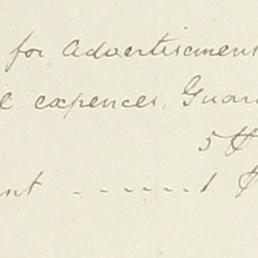 for Advertismens
l expences, Guar
5 $
nt ------ 1 $